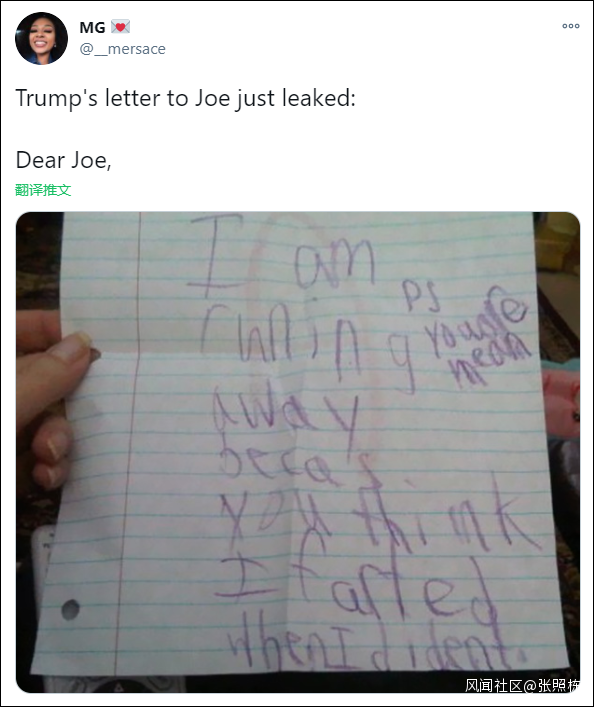 MG
@__mersace
Trump's letter to Joe just leaked:
Dear Joe,
翻译推文
I am
runing
away
becas
you think
I farted
when I dident.
PS
you are
mean
风闻社区@张照栋